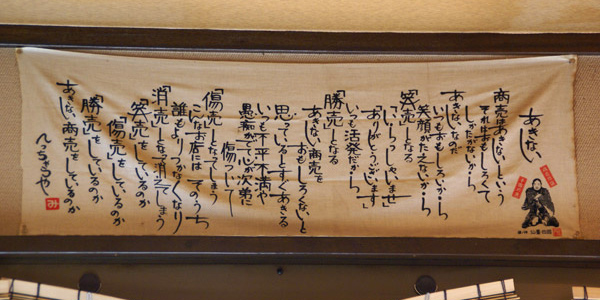 あきない
商売はあきないという
それはおもしろくて
しかたがないから
あきないなのだ
いつもおもしろいから
笑顔がたえないから
「笑売」となる
「いらっしゃいませ」
「ありがとうございます」
いつも活発だから
「勝売」となる
あきない商売を
おもしろくないと
思っているとすぐあきる
いつも不平不満や
愚痴がでて心が次第に
傷ついて
「傷売」となってしまう
こんなお店にはそのうち
誰もよりつかなくなり
「消売」となって消えてしまう
「笑売」をしているのか
「傷売」をしているのか
「勝売」をしているのか
あきない商売をしているのか
み